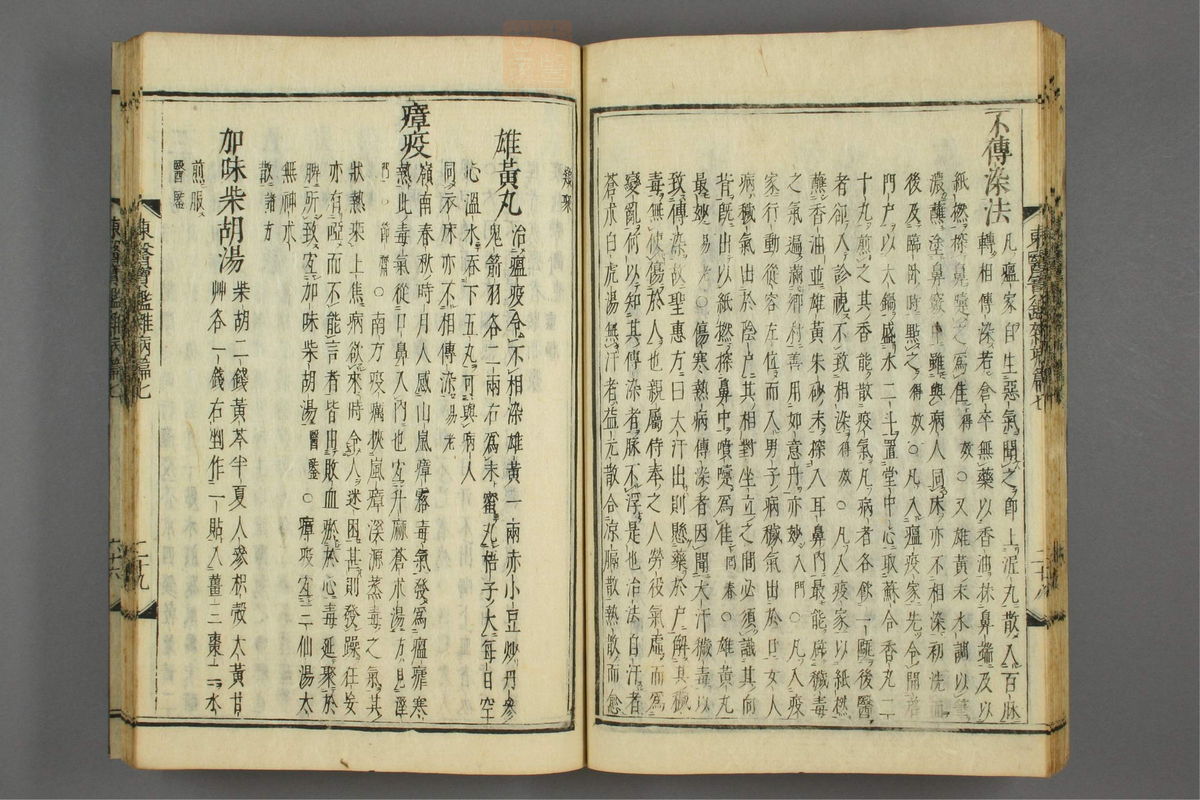 不傳染法 凡瘟家自生惡氣聞之即上泥丸散入百脉
轉相傳染若倉卒無藥以香油抹鼻端及以
紙撚探鼻嚏之為佳得效○又雄黃末水調以筆
濃蘸塗鼻竅中雖與病人同床亦不相染初洗面
後及臨臥時點之得效○凡入瘟疫家先令開啓
門戶以大鍋盛水二斗置堂中心取蘇合香丸二
十丸煎之其香能散疫氣凡病者各飮一甌後醫
者却入診視不致相染得效○凡人疫家以紙撚
蘸香油並雄黃朱砂末探入耳鼻內最能辟穢毒
之氣遍滿鄉村善用如意丹亦妙入門○凡入疫
家行動從容左位而入男子病穢氣出於口女人
病穢氣出於陰戶其相對坐立之間必須識其向
背旣出以紙撚探鼻中噴嚏爲佳回春○雄黃丸
最妙易老○傷寒熱病傳染者因聞大汗穢毒以
致傳染故聖惠方曰大汗出則懸藥於戶解其穢
毒無使傷於人也親屬侍奉之人勞役氣虛而爲
變亂何以知其傳染者脉不浮是也治法自汗者
蒼朮白虎湯無汗者益元散合凉膈散熱散而愈
東醫寶鑑雜病篇七 二十八
雄黃丸 治瘟疫令不相染雄黃一兩赤小豆炒丹參
鬼箭羽各二兩右爲末蜜丸梧子大每日空
心溫水呑下五丸可與病人
同衣床亦不相傳染易老
瘴疫 嶺南春秋時月人感山嵐瘴霧毒氣發爲瘟瘧寒
熱此毒氣從口鼻入內也宜升麻蒼朮湯方見濕
門○節齋○南方疫癘挾嵐瘴溪源蒸毒之氣其
狀熱乘上焦病欲來時令人迷困甚則發躁狂妄
亦有啞而不能言者皆由敗血瘀於心毒延聚於
脾所致宜加味柴胡湯醫鑑○瘴疫宜三仙湯太
無神朮
散諸方
加味柴胡湯 柴胡二錢黃芩半夏人參枳殼大黃甘
艸各一錢右剉作一貼入薑三棗二水
煎服
醫鑑
東醫寶鑑雜病篇七 二十九